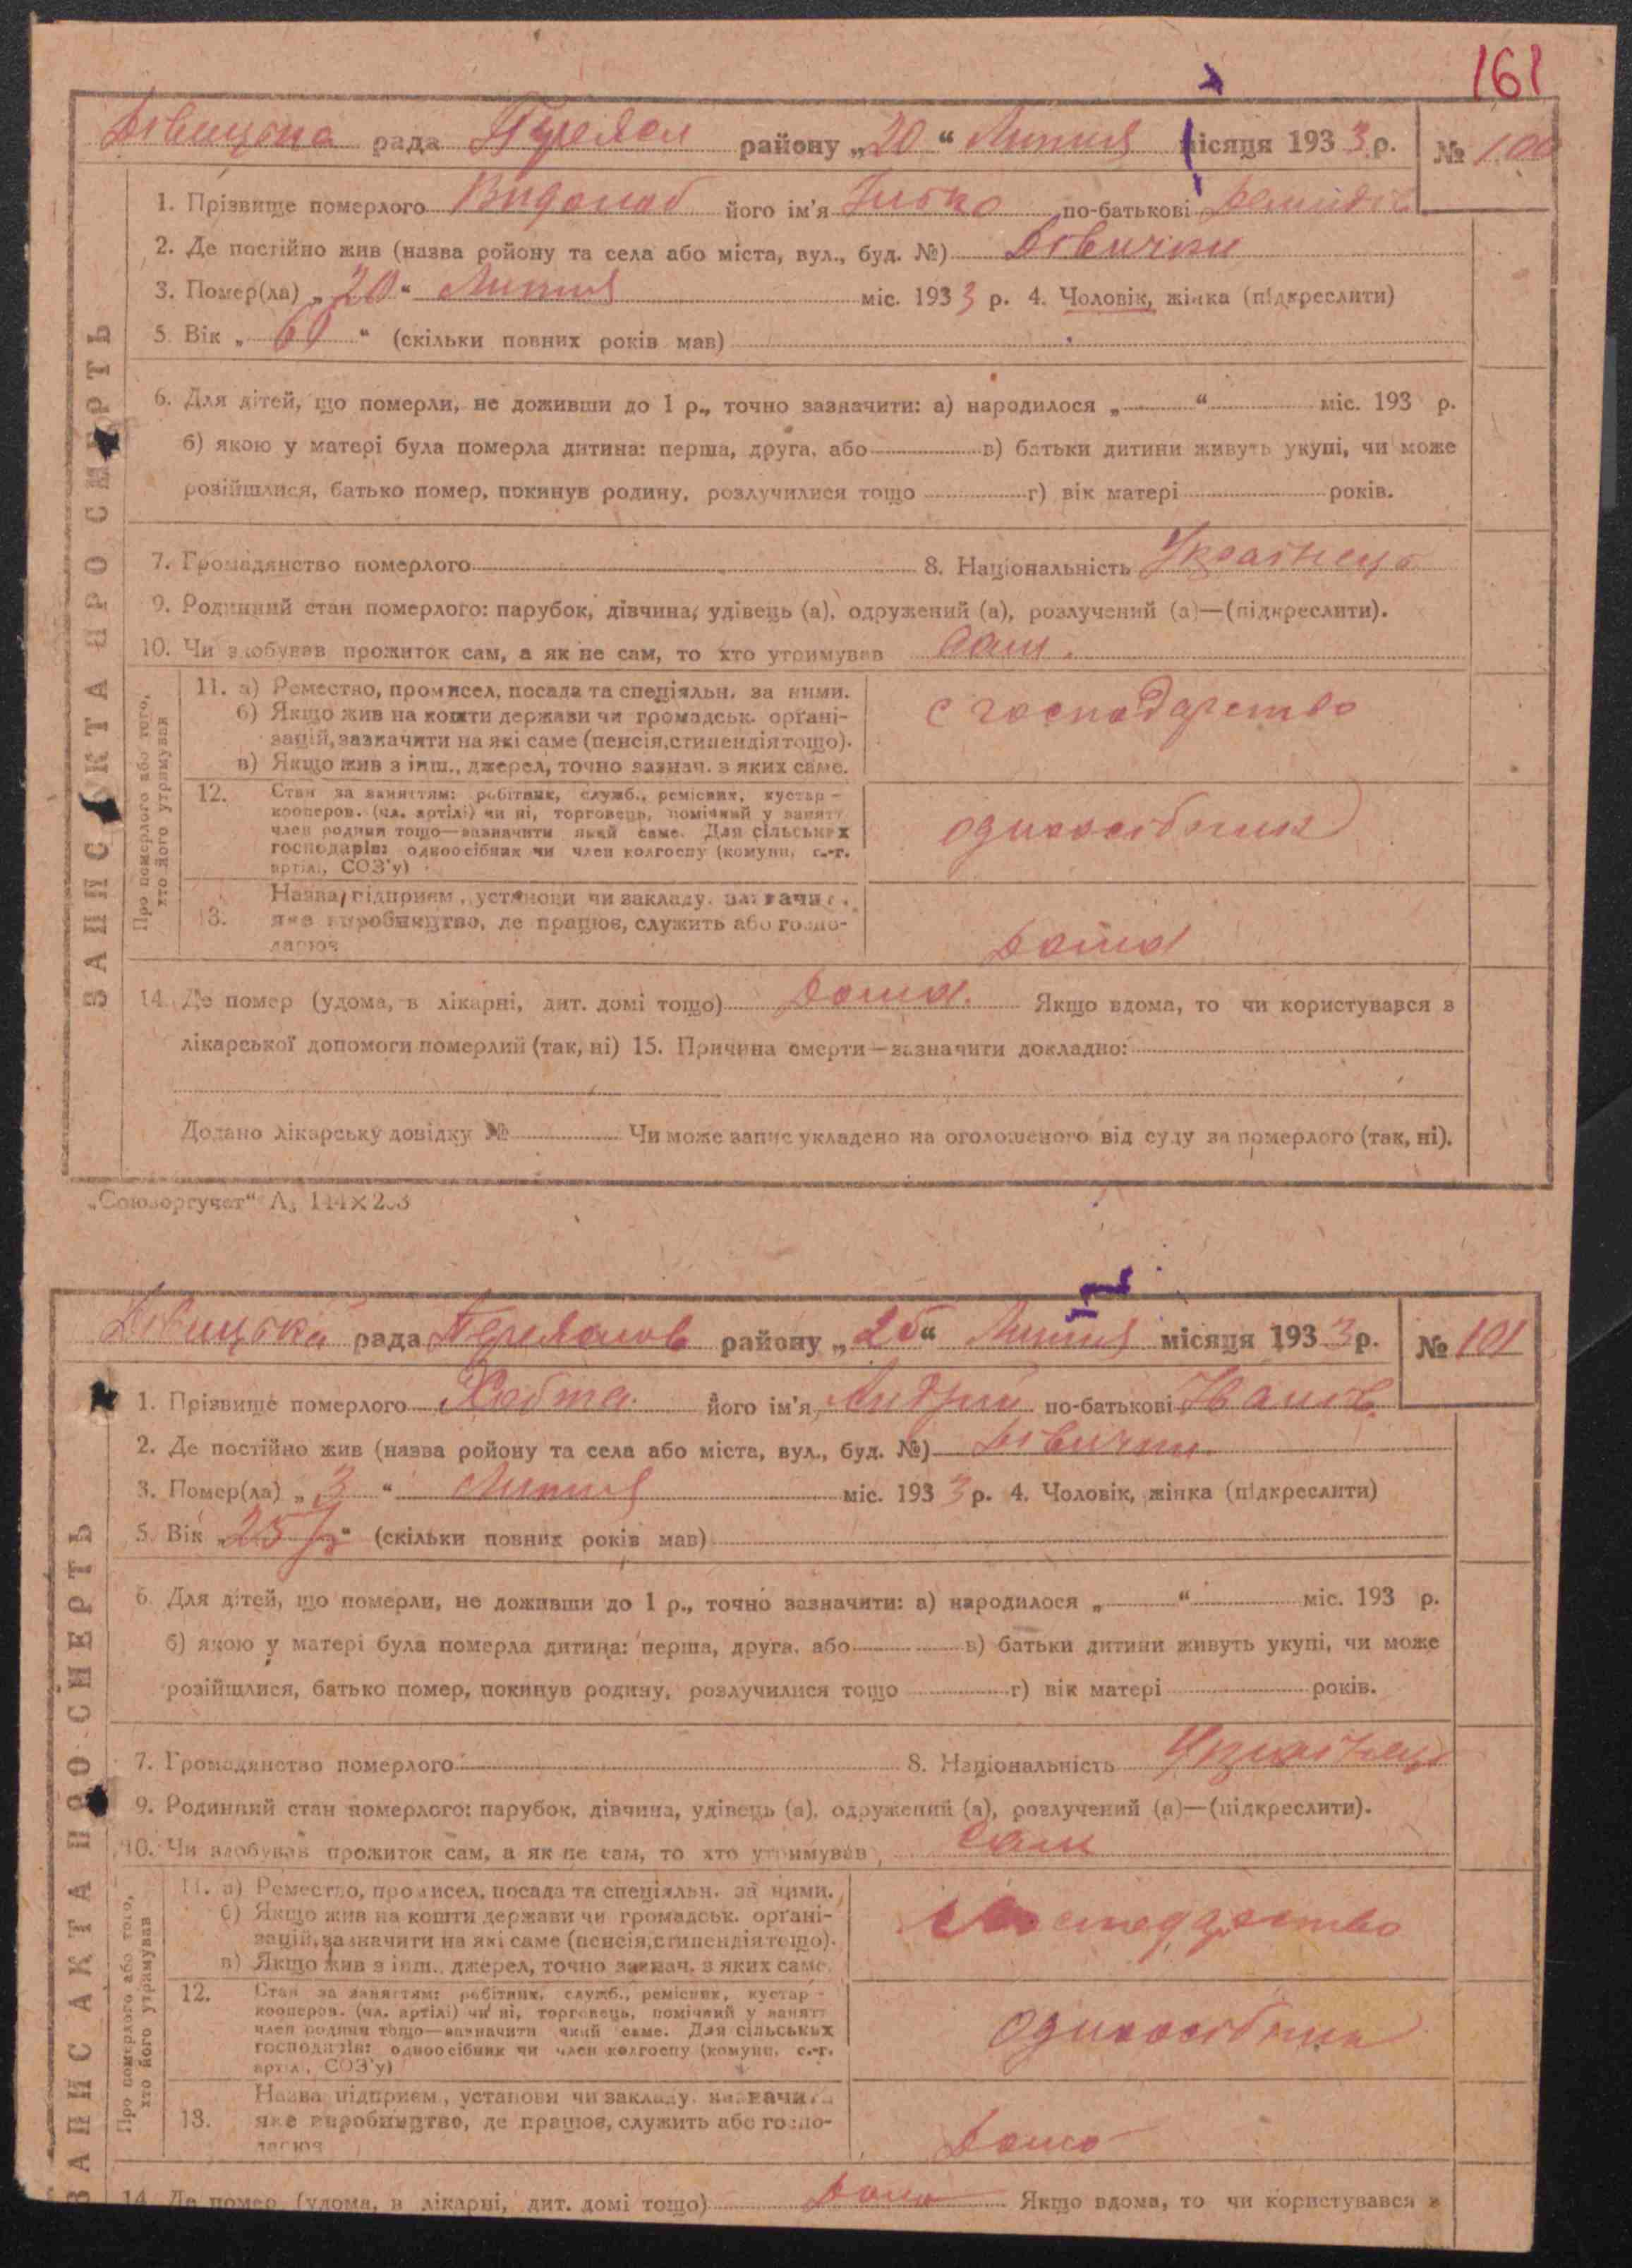 161
Дівицька рада район у „20“ Липня місяця 1933 р. № 100
1. Прізвище померлого його ім'я по-батькові
2. Де постійно жив (назва ройону та села або міста, вул., буд. №) Дівички
3. Помер(ла) „20“ Липня міс. 1933 р. 4. Чоловік, жінка (підкреслити)
5. Вік „60“ (скільки повних років мав)
6. Для дітей, що померли, не доживши до 1 р., точно зазначити: а) народилося „ “ міс. 193 р.
б) якою у матері була померла дитина: перша, друга, або в) батьки дитини живуть укупі, чи може
розійшлися, батько помер, покинув родину, розлучилися тощо г) вік матері років.
7. Громадянство померлого 8. Національність Українець
9. Родинний стан померлого: парубок, дівчина, удівець (а), одружений (а), розлучений (а)—(підкреслити).
10. Чи здобував прожиток сам, а як не сам, то хто утримував сам.
Про померлого або того,
хто його утримував
11. а) Ремество, промисел, посада та спеціяльн. за ними.
б) Якщо жив на кошти держави чи громадськ. органі-
зацій, зазначити на які саме (пенсія, стипендія тощо).
в) Якщо жив з інш., джерел, точно зазнач. з яких саме.
с господарство
12. Стан за заняттям: робітник, служб., ремісник, кустар-
кооперов. (чл. артілі) чи ні, торговець, помічний у занятт
член родини тощо—зазначити який саме. Для сільських
господарів: одноосібник чи член колгоспу (комуни, с.-г.
артіл., СОЗ'у)
одноосібник
13. Назва підприєм., установи чи закладу, зазначити
яке виробництво, де працює, служить або госпо-
дарює
дома
14. Де помер (удома, в лікарні, дит. домі тощо) дома. Якщо вдома, то чи користувався з
лікарської допомоги померлий (так, ні) 15. Причина смерти—зазначити докладно:
Додано лікарську довідку № Чи може запис укладено на оголошеного від суду за померлого (так, ні).
ЗАПИС АКТА ПРО СМЕРТЬ
„Союзоргучет“ А₅ 144×203
Дівицька рада району „25“ Липня місяця 1933 р. № 101
1. Прізвище померлого його ім'я Андрій по-батькові Іванов.
2. Де постійно жив (назва ройону та села або міста, вул., буд. №) Дівички
3. Помер(ла) „3“ Липня міс. 1933 р. 4. Чоловік, жінка (підкреслити)
5. Вік „25“ (скільки повних років мав)
6. Для дітей, що померли, не доживши до 1 р., точно зазначити: а) народилося „ “ міс. 193 р.
б) якою у матері була померла дитина: перша, друга, або в) батьки дитини живуть укупі, чи може
розійшлися, батько помер, покинув родину, розлучилися тощо г) вік матері років.
7. Громадянство померлого 8. Національність Українець
9. Родинний стан померлого: парубок, дівчина, удівець (а), одружений (а), розлучений (а)—(підкреслити).
10. Чи здобував прожиток сам, а як не сам, то хто утримував сам
Про померлого або того,
хто його утримував
11. а) Ремество, промисел, посада та спеціяльн. за ними.
б) Якщо жив на кошти держави чи громадськ. органі-
зацій, зазначити на які саме (пенсія, стипендія тощо).
в) Якщо жив з інш., джерел, точно зазнач. з яких саме.
господарство
12. Стан за заняттям: робітник, служб., ремісник, кустар-
кооперов. (чл. артілі) чи ні, торговець, помічний у занятт
член родини тощо—зазначити який саме. Для сільських
господарів: одноосібник чи член колгоспу (комуни, с.-г.
артіл., СОЗ'у)
одноосібник
13. Назва підприєм., установи чи закладу, зазначити
яке виробництво, де працює, служить або госпо-
дарює
дома
14. Де помер (удома, в лікарні, дит. домі тощо) дома Якщо вдома, то чи користувався з
ЗАПИС АКТА ПРО СМЕРТЬ